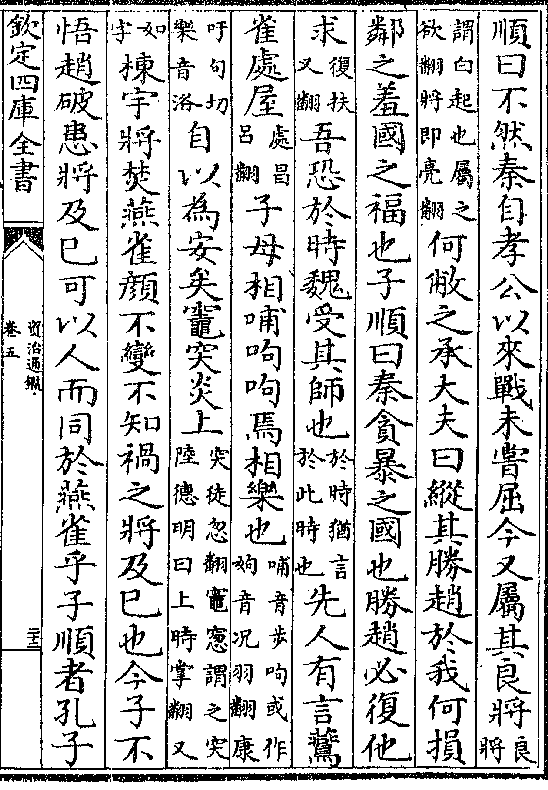 順曰不然秦自孝公以來戰未嘗屈今又屬其良將良將
謂白起也屬之欲翻將即亮翻何敝之承大夫曰縱其勝趙於我何損
鄰之羞國之福也子順曰秦貪暴之國也勝趙必復他
求復扶又翻吾恐於時魏受其師也於時猶言於此時也先人有言鷰
雀處屋處昌呂翻子母相哺呴呴焉相樂也哺音步呴或作姁音况羽翻康
吁句切樂音洛自以為安矣竈突炎上突徒忽翻竈窻謂之突陸德明曰上時掌翻又
如字棟宇將焚燕雀顔不變不知禍之將及已也今子不
悟趙破患將及已可以人而同於燕雀乎子順者孔子
欽定四庫全書
資治通鑑
卷五
二十三